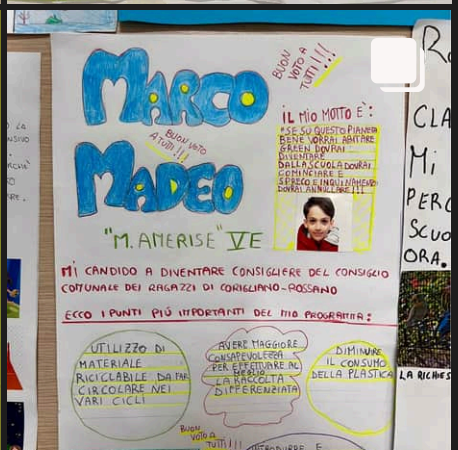 MARCO
BUON
VOTO A
TUTTI!!!
BUON VOTO
A TUTTI!!!
MADEO
"M. AMERISE" VE
IL MIO MOTTO È:
"SE SU QUESTO PIANETA
BENE VORRAI ABITARE
GREEN DOVRAI
DIVENTARE
DALLA SCUOLA DOVRAI
COMINCIARE E
SPRECO E INQUINAMENTO
DOVRAI ANNULLARE!!!
MI CANDIDO A DIVENTARE CONSIGLIERE DEL CONSIGLIO
COMUNALE DEI RAGAZZI DI CORIGLIANO-ROSSANO
ECCO I PUNTI PIÙ IMPORTANTI DEL MIO PROGRAMMA:
UTILIZZO DI
MATERIALE
RICICLABILE DA FAR
CIRCOLARE NEI
VARI CICLI
AVERE MAGGIORE
CONSAPEVOLEZZA
PER EFFETTUARE AL
MEGLIO
LA RACCOLTA
DIFFERENZIATA
DIMINUIRE
IL CONSUMO
DELLA PLASTICA
BUON
VOTO A
TUTTI!!!
INTRODURRE E
CLA
MI
PERC
SCUO
ORA.
LA RICHIES